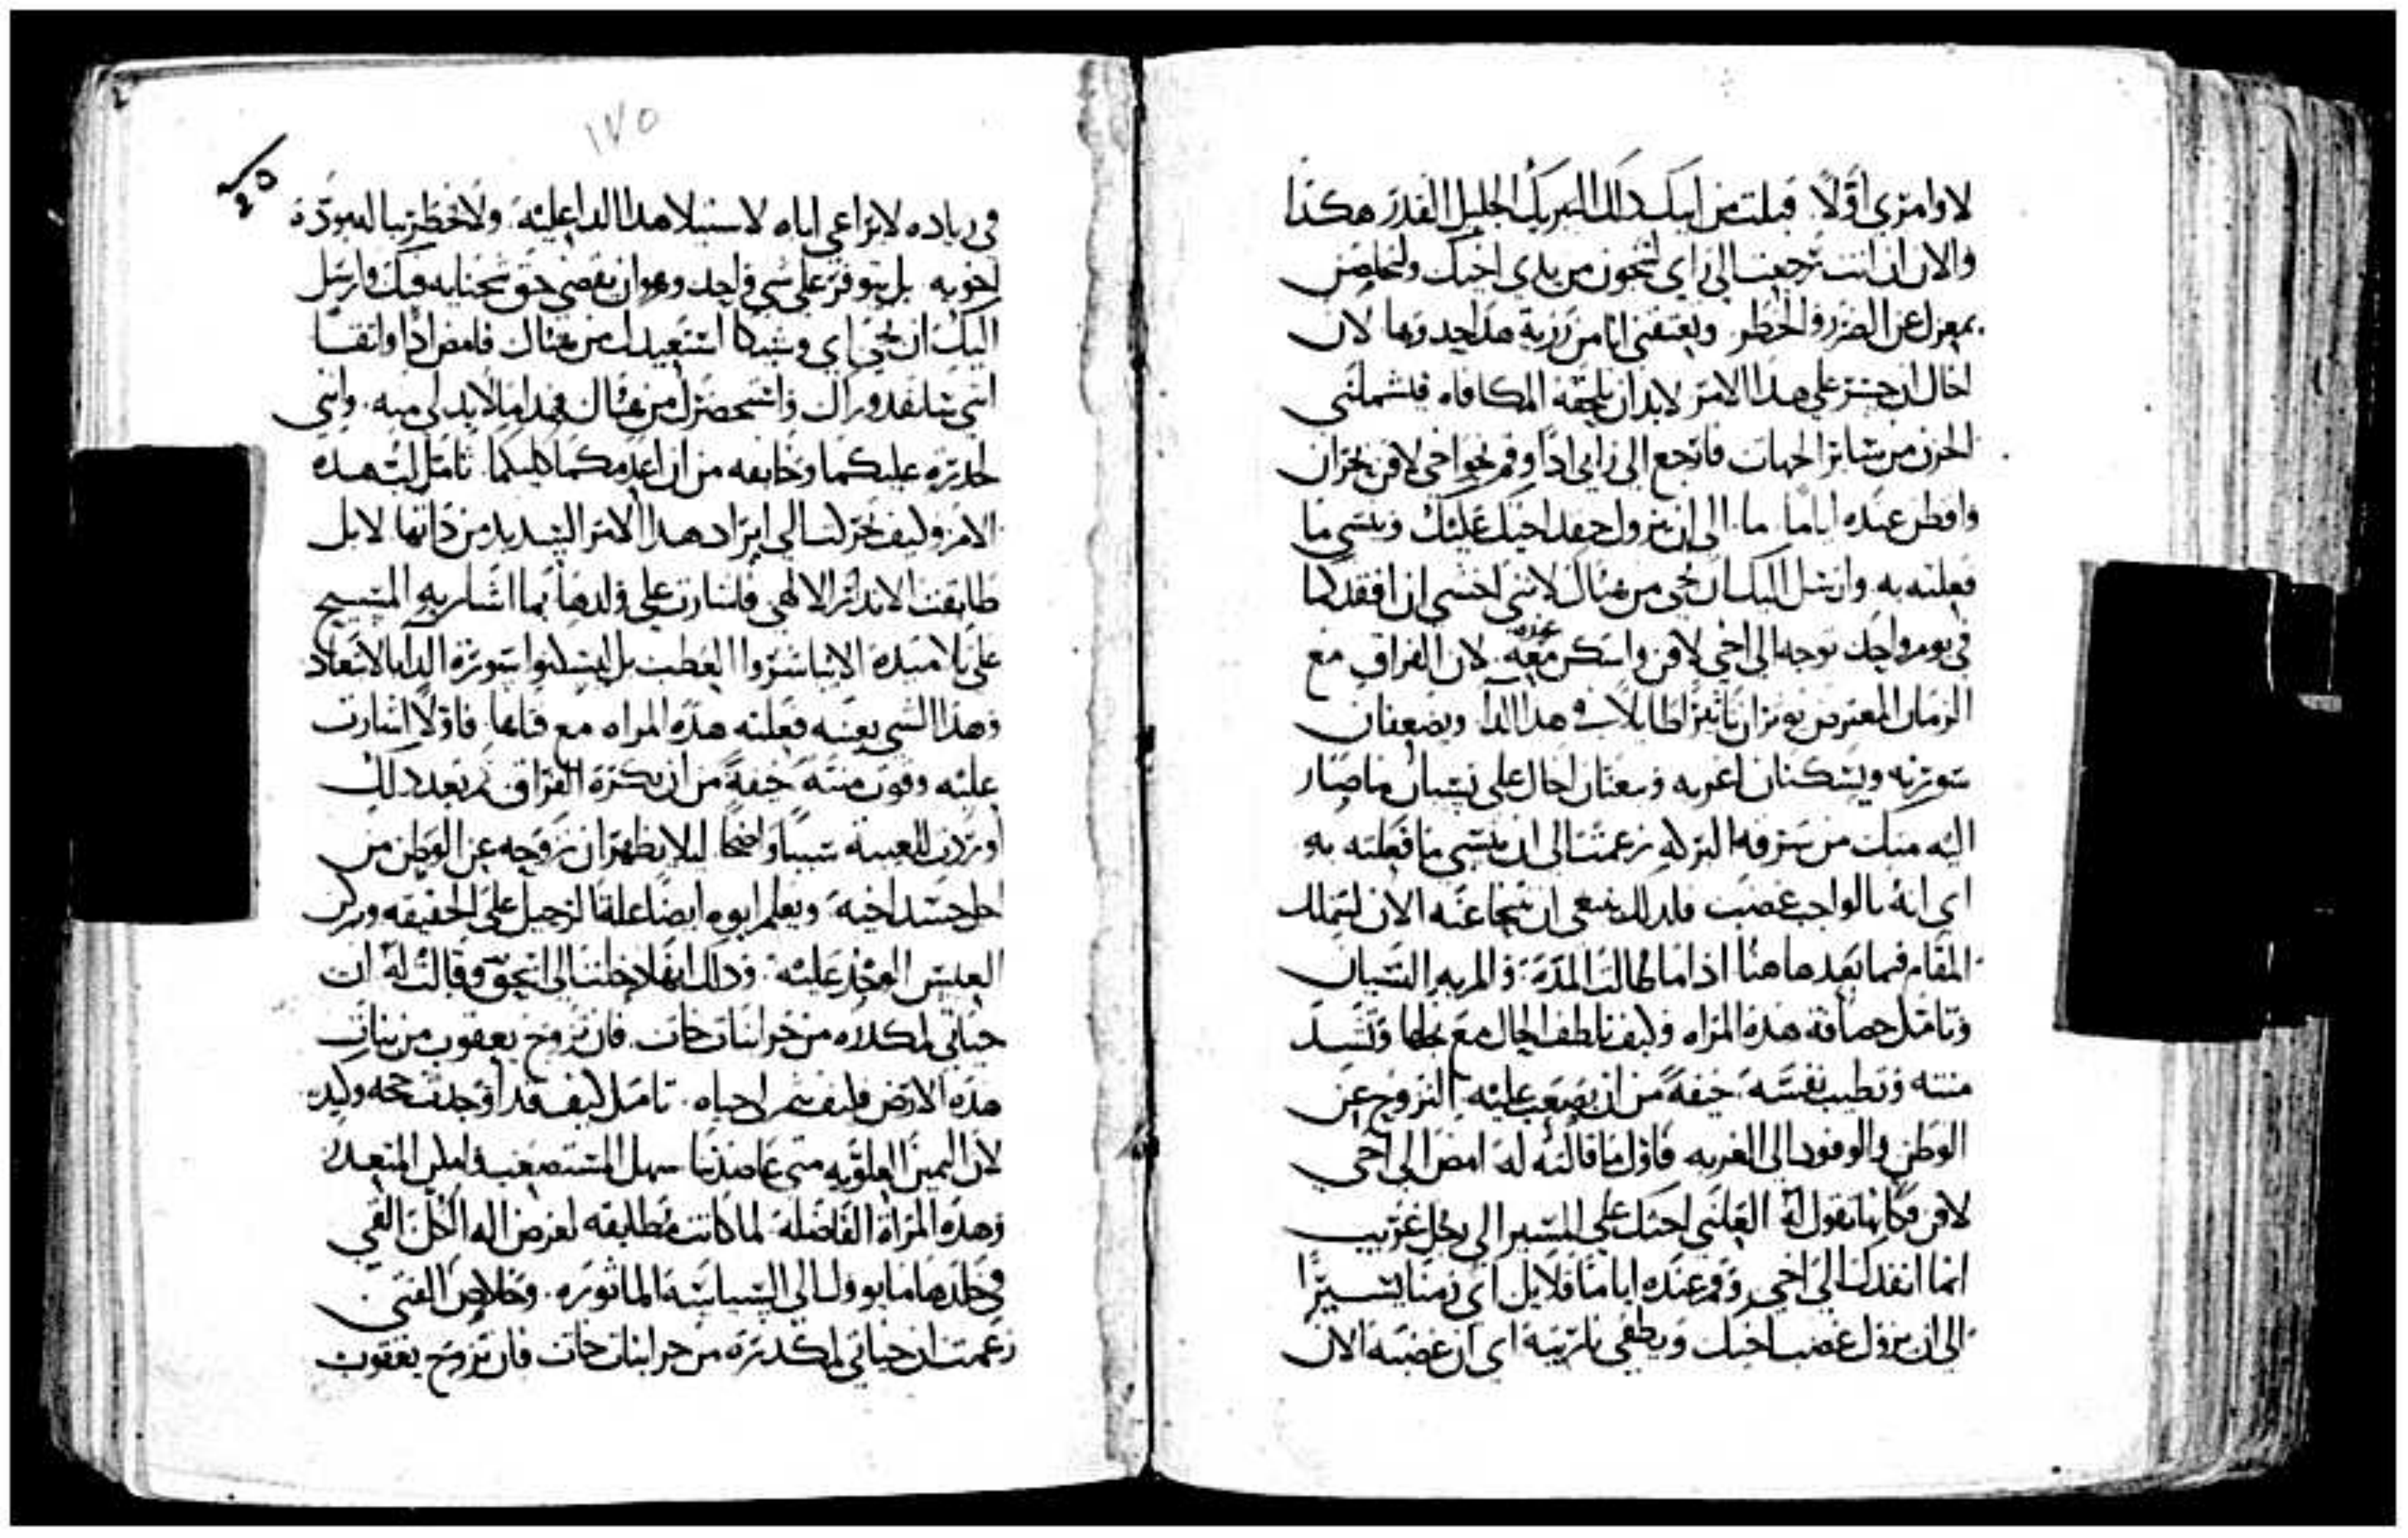 لاوامري اولًا قبلت من ابيك ذلك التبريك الجليل القدر هكذا
والان ان انت رجعت الى راي لتنجون من يدي اخيك ولتخلص
بمعزل عن الضرر والخطر وتعتقني انا من رزية هذا حدوها لان
اخال ان جسر على هذا الامر لابد ان يلحقه المكافاه فيشملني
الحزن من سائر الجهات فارجع الى رايي اذًا وقم نحو اخي لافن بحران
واقطن عنده اياما ما الى ان يزول حقد اخيك عليك وينسى ما
فعلته به وارسل اليك ان تجي من هناك لانني اخشى ان افقدكما
في يوم واحد توجه الى اخي لافن واسكن معه عنده لان الفراق مع
الزمان المعترض يوثران تاثيرًا طايلًا في هذا الدا ويضعفان
سورته ويسكنان اعربه نسيان ما صار
اليه منك من سرقه البركه زعمت الى ان ينسى ما فعلته به
اي انه بالواجب غضب فلذلك ينبغي ان تنجا عنه الان لتملك
المقام فيما بعد هاهنا اذا ما طالت المدة والمربه النسيان
وتامل حصافة هذه المراه وكيف تلطف الحال مع نجلها وتشد
منته وتطيب نفسه خيفةً من ان يصعب عليه النزوح عن
الوطن والوفود الى الغربه فاول ما قالته له امض الى اخي
لافن فكانها تقول له القلني احثك على المسير الى رجل غريب
انما انفدك الى اخي وقم عنده اياما قلايل اي زمنًا يسيرًا
الى ان يزول غضب اخيك ويطفي نايرته اي ان غضبه الان
١٧٥
في زياده لا يراعي اباه لاستيلا هذا الدا عليه ولا خطر بباله مودة
اخويه بل يتوفر على شي واحد وهو ان يقضي حق شحنايه فيك وارسل
اليك ان تجي اي وشيكا استعيدك من هناك فامض اذًا واثقا
انني سانفد وراك واستحضرك من هناك فهذا ما لابد لي منه وانني
حذره عليكما وخايفه من ان اعدمكما كليكما تامل لب هذه
الام وكيف تحركت الى ايراد هذا الامر الشديد من ذاتها لا بل
طابقت الانذار الالهي فاشارت على ولدها بما اشار به المسيح
على تلامتذة الا يباشروا العطب بل يستلوا سورة الدا بالابتعاد
وهذا الشي بعينه فعلته هذه المراه مع فتاها فاولًا اشارت
عليه وقوت منته خيفةً من ان يكره الفراق ثم بعد ذلك
اوردت للغيبة سببًا واضحًا ليلا يظهر ان نزوحه عن الوطن من
اجل حسد اخيه ويعلم ابوه ايضا علة الرحيل على الحقيقه وركز
العيس المحذر عليه وذلك انها دخلت الى اسحق وقالت له ان
حياتي لمكدره من جرا بنات حات فان تزوج يعقوب من بنات
هذه الارض فليف شهر لي حياه تامل كيف قد اوجدت حجه وكيده
لان اليمين العلويه متى عاضدتنا سهل المستصعب وامكن المتعدر
وهذه المراة الفاضله لما كانت مطابقه لغرض اله الكل القي
في خلدها ما يوول الى السياسة الماثوره وخلاص الفتى
زعمت ان حياتي لمكدره من جرا بنات حات فان تزوج يعقوب